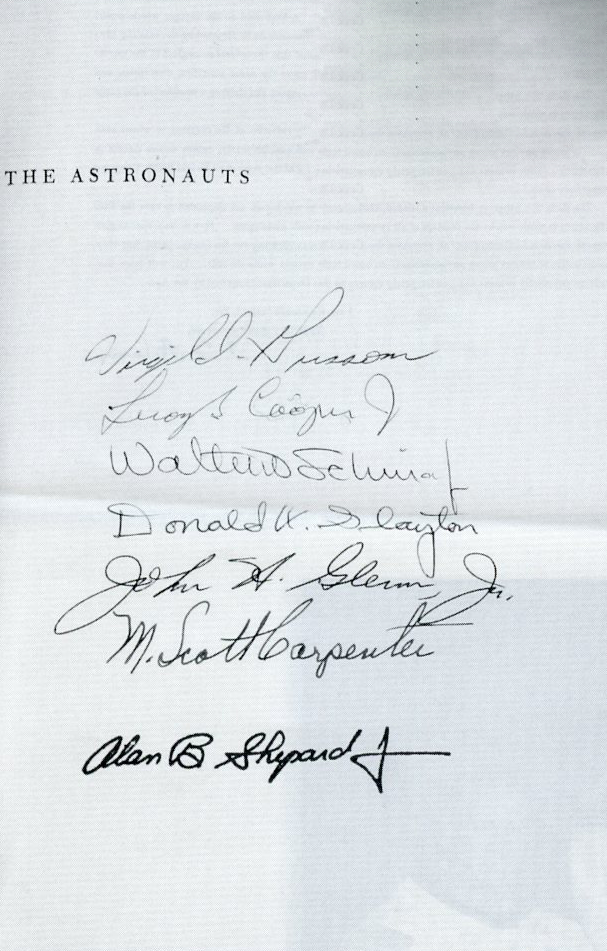 THE ASTRONAUTS
Virgil I. Grissom
Leroy G Cooper Jr
Walter M Schirra Jr
Donald K. Slayton
John H. Glenn, Jr.
M. Scott Carpenter
Alan B Shepard Jr